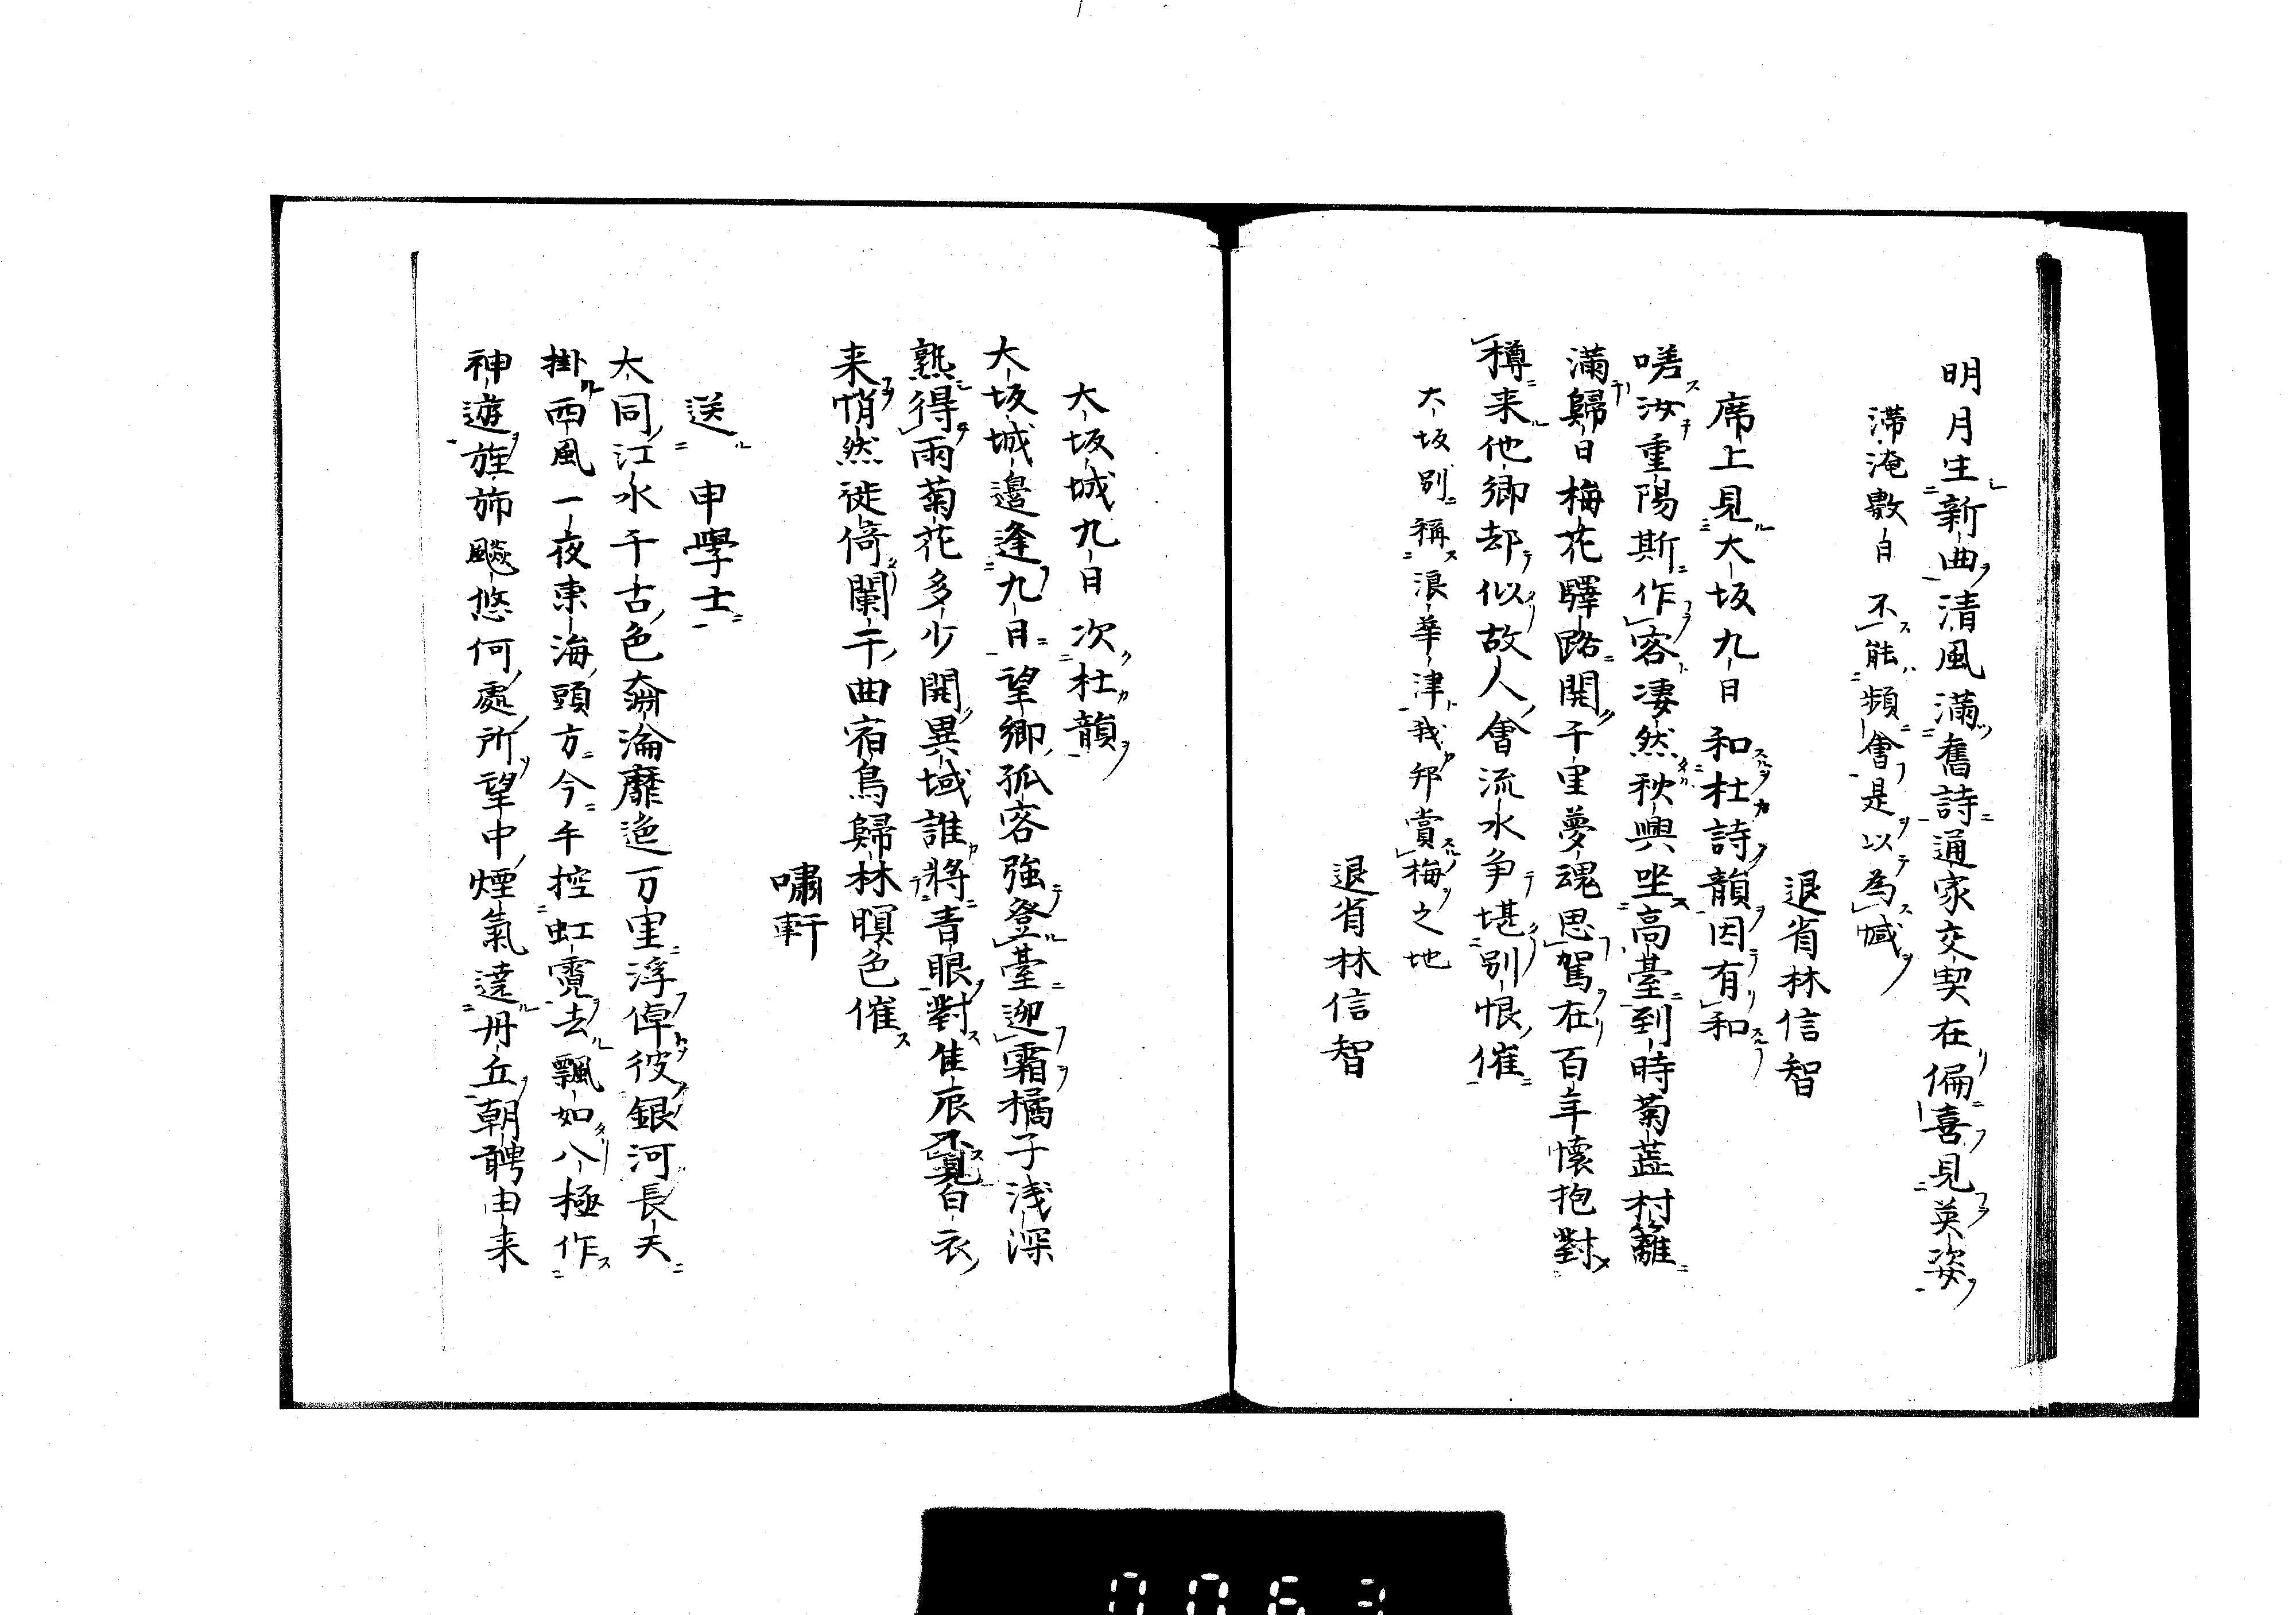 明月生新曲清風滿舊詩通家交契在偏喜見英姿
滯淹數日不能頻會是以為憾
退省林信智
席上見大坂九日和杜詩韻因有和
嗟汝重陽斯作客凄然秋興坐高臺到時菊蕋村籬
滿歸日梅花驛路開千里夢魂思駕在百年懷抱對
樽来他鄉却似故人會流水争堪別恨催
大坂別稱浪華津我邦賞梅之地
退省林信智
大坂城九日次杜韻
大坂城邊逢九日望鄉孤客強登臺迎霜橘子浅深
熟得雨菊花多少開異域誰將青眼對佳辰不見白衣
来悄然徙倚闌干曲宿鳥歸林暝色催
嘯軒
送申學士
大同江水千古色奫淪靡迤万里浮倬彼銀河長天
掛西風一夜東海頭方今手控虹霓去飄如八極作
神遊旌旆颷悠何處所望中煙氣達丹丘朝聘由来
0063